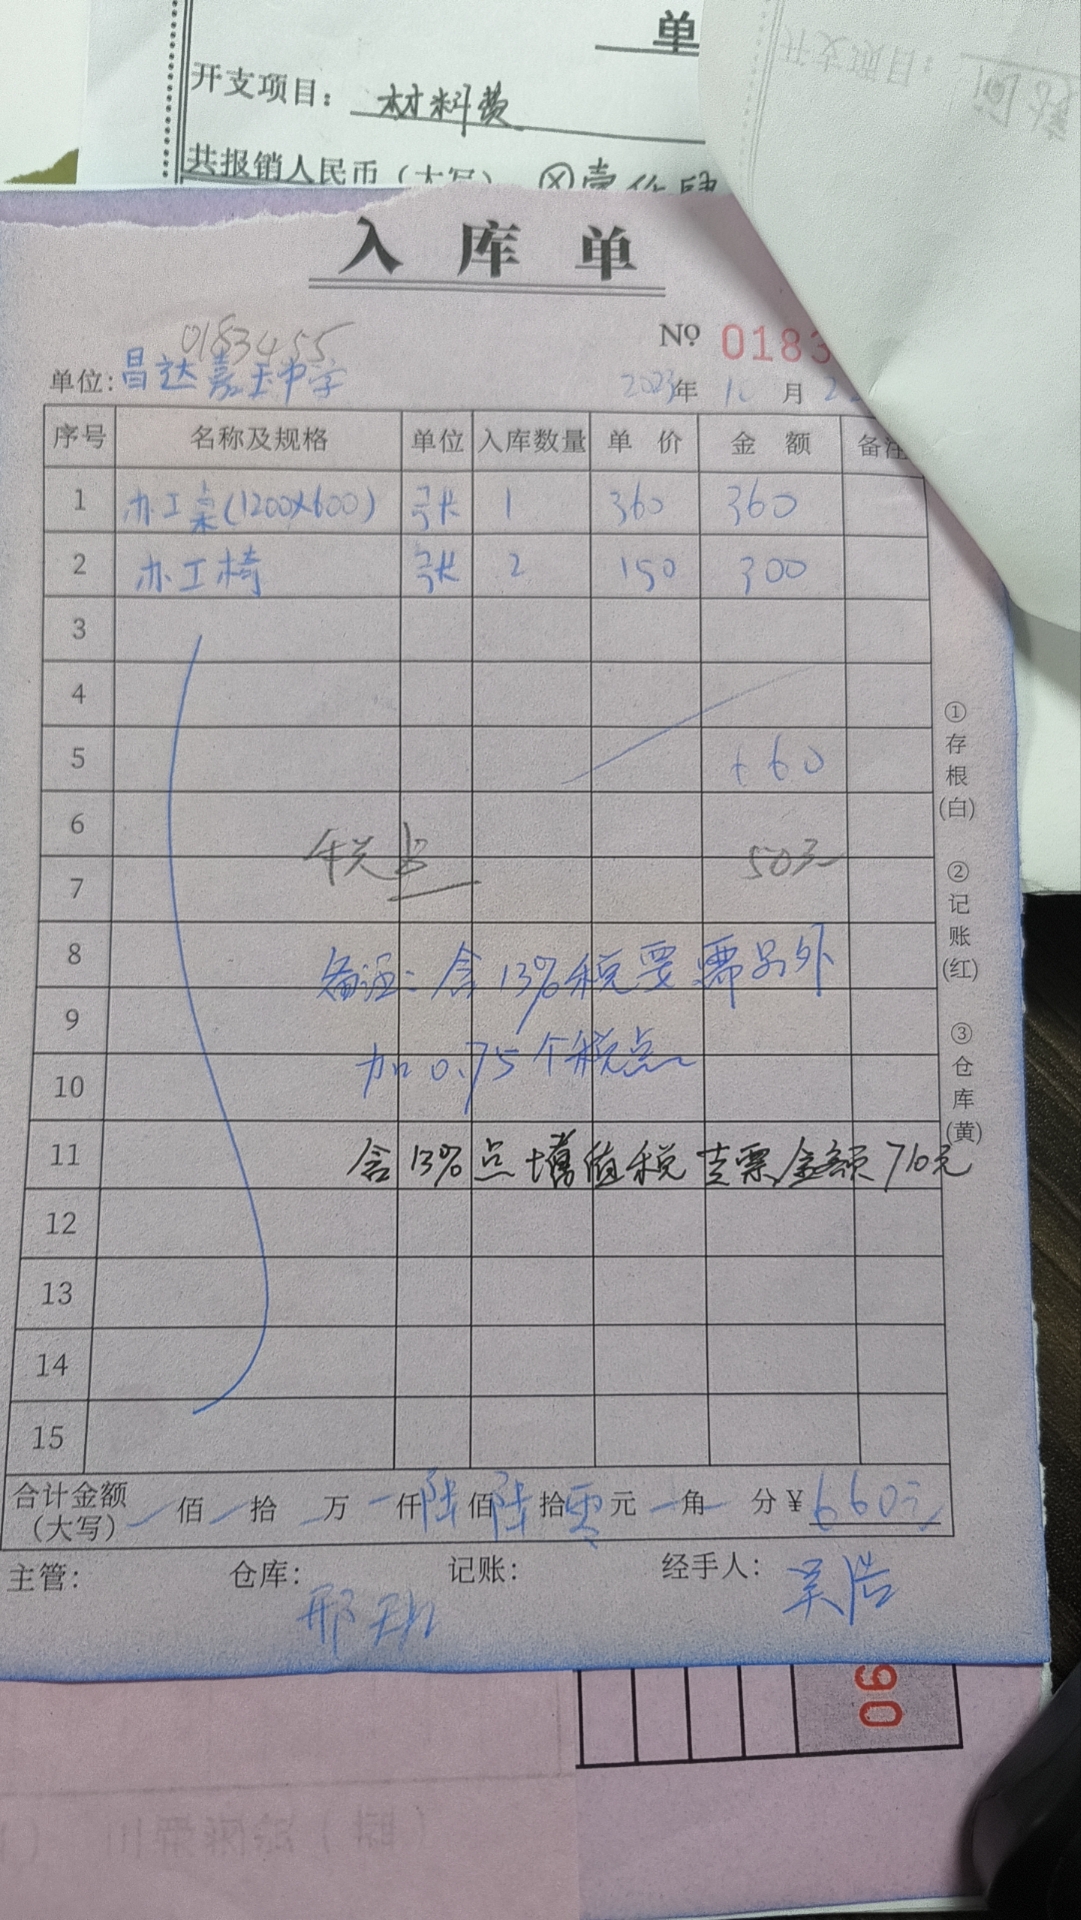 单
开支项目: 材料费
共报销人民币(大写) ⊗壹仟肆
入库单
0183455
№ 0183
单位:昌达嘉玉中学 2023年 月 2
序号 名称及规格 单位 入库数量 单价 金额 备注
1 办工桌(1200×600) 张 1 360 360
2 办工椅 张 2 150 300
3
4
5 660
6
税点 50元
7
8 备注:含13%税要需另外
9
加0.75个税点
10
11 含13%点增值税支票金额710元
12
13
14
15
合计金额(大写) 佰 拾 万 仟 陆佰 陆拾 零元 角 分 ¥ 660元
主管: 仓库: 记账: 经手人: 吴浩
邢
①存根(白) ②记账(红) ③仓库(黄)
06